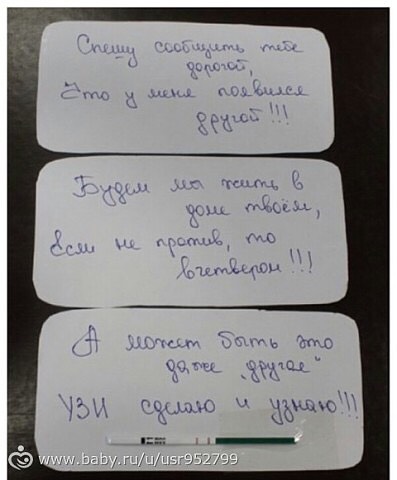 Спешу сообщить тебе
дорогой,
Что у меня появился
другой!!!
Будем мы жить в
доме твоём,
Если не против, то
вчетвером!!!
А может быть это
даже "другая"
УЗИ сделаю и узнаю!!!
www.baby.ru/u/usr952799